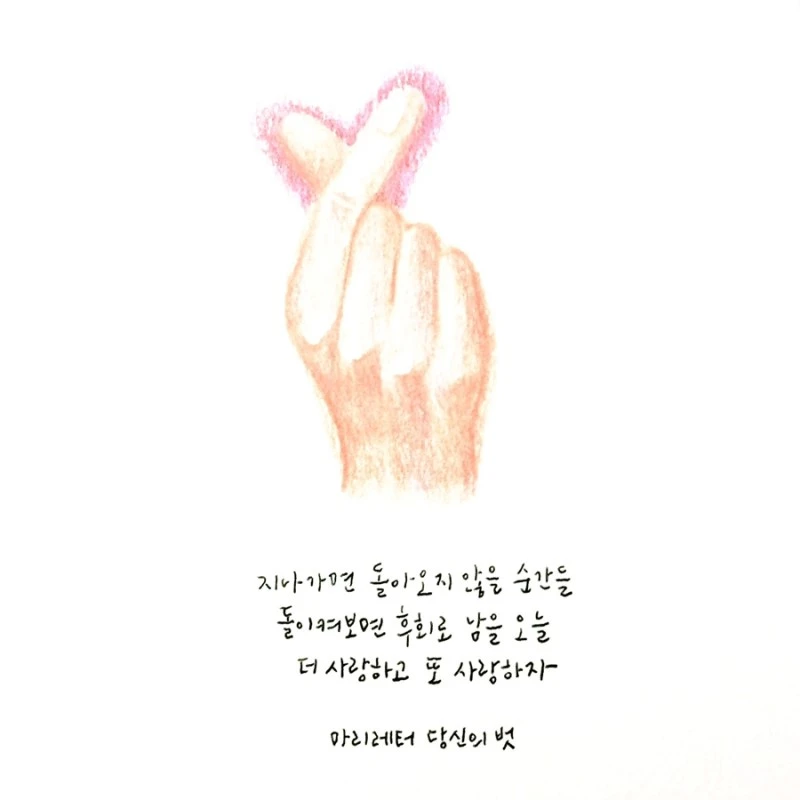 지나가면 돌아오지 않을 순간들
돌이켜보면 후회로 남을 오늘
더 사랑하고 또 사랑하자
마리레터 당신의 벗